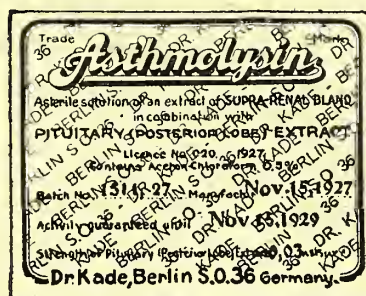 Trade Mark
Asthmolysin
A sterile solution of an extract of SUPRA-RENAL GLAND
in combination with
PITUITARY (POSTERIOR LOBE) EXTRACT
Licence No. 020. 1927.
Contains Aceton Chloroform 0,5%
Batch No. Manufactd Nov.15,1927
Activity guaranteed until Nov.15,1929
Strength of Pituitary (Posterior lobe)
Dr. Kade, Berlin S.O.36 Germany.